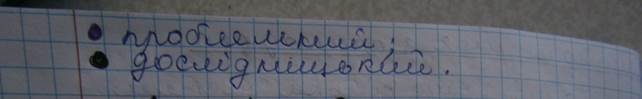 • проблемний;
• дослідницький.